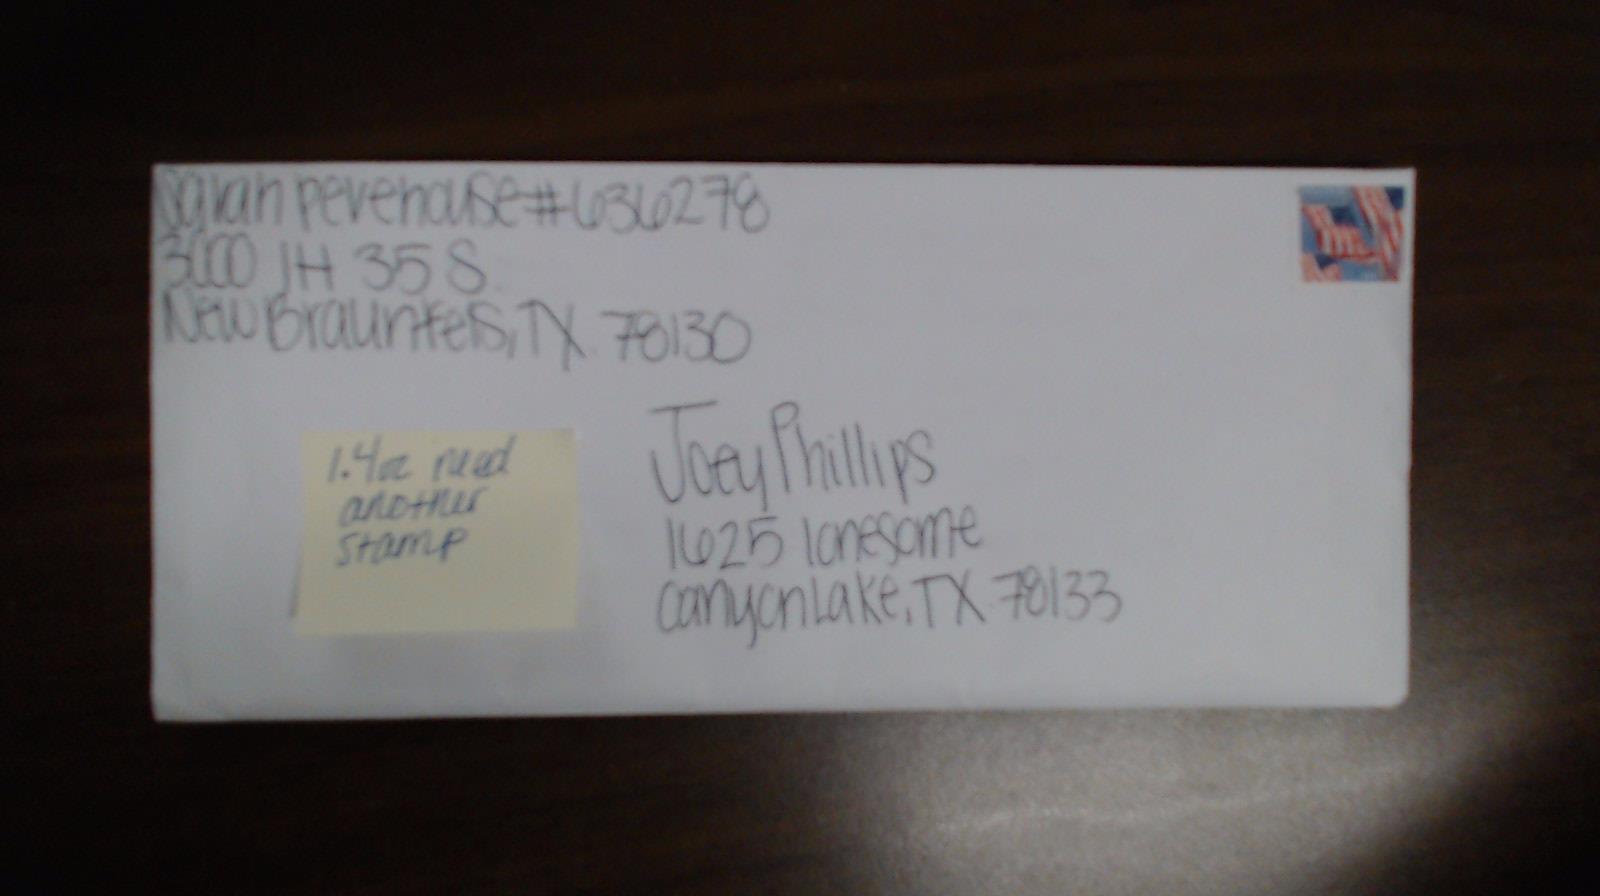 Pevehouse #636278
3000 IH 35 S.
New Braunfels, TX 78130
1.4oz need
another
stamp
Joey Phillips
1625 lonesome
Canyon Lake, TX 78133